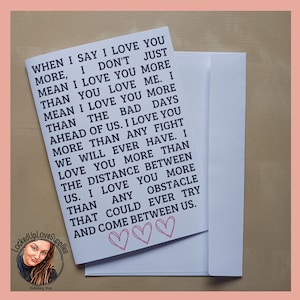 WHEN I SAY I LOVE YOU
MORE, I DON'T JUST
MEAN I LOVE YOU MORE
THAN YOU LOVE ME. I
MEAN I LOVE YOU MORE
THAN THE BAD DAYS
AHEAD OF US. I LOVE YOU
MORE THAN ANY FIGHT
WE WILL EVER HAVE. I
LOVE YOU MORE THAN
THE DISTANCE BETWEEN
US. I LOVE YOU MORE
THAN ANY OBSTACLE
THAT COULD EVER TRY
AND COME BETWEEN US.
LockedUpLoveSupplies